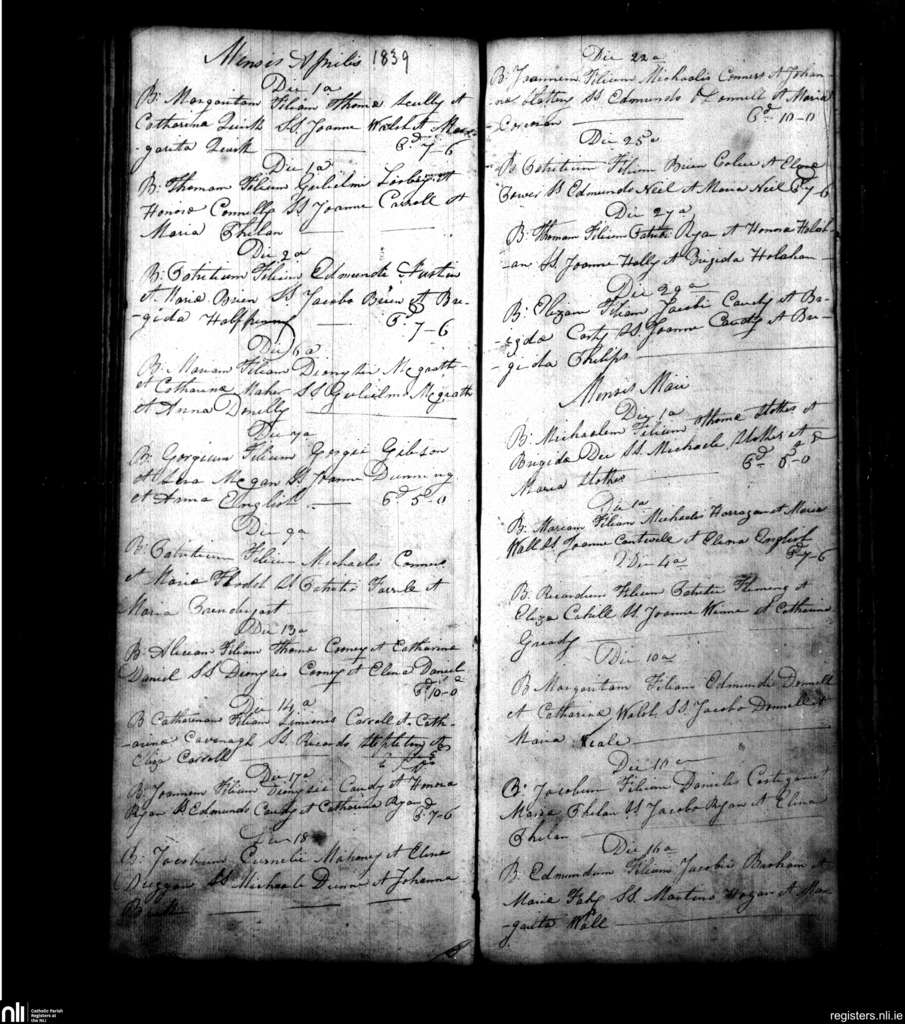 Mensis Aprilis 1839
Die 1a
B: Margaritam Filiam Thoma Scully et
Catharina Quirk SS Joanne Walsh et Mar-
garita Quirk 6d 7-6
Die 1a
B: Thomam Filium Gulielmi et
Honora Connelly SS Joanne Carroll et
Maria Phelan
Die 2a
B: Patritium Filium Edmundi Austin
et Maria Brien SS Jacobo Brien et Bri-
gida Halfpenny 6d 7-6
Die 6a
B: Mariam Filiam Dionysii Mcgrath
et Catharina Maher SS Gulielmo Mcgrath
et Anna Donelly
Die 7a
B: Gorgium Filium Gorgii Gibson
et Megan SS Joanne Dunning
et Anna English 6d 5-0
Die 9a
B: Patritium Filium Michaelis Connors
et Maria SS Patritio Farrell et
Maria Prendergast
Die 13a
B: Aliciam Filiam Thoma Comey et Catharina
Daniel SS Dionysio Comey et Elena Daniel
6d 10-0
Die 14a
B Catharinam Filiam Simionis Carroll et Cath-
-arina Cavenagh SS. Ricardo Stapleton et
Eliza Carroll
Die 17a
B Joannem Filium Dionysii Caudy et Honora
Ryan SS Edmundo Caudy et Catharina Ryan 6d 7-6
Die 18
B: Jacobum Curnelii Mahoney et Elena
Duggan SS Michaele Dunne et Johanna
Die 22a
B: Joannem Filium Michaelis Connors et Johan
-na Slattery SS Edmundo O Donnell et Maria
Corcoran 6d 10-0
Die 25a
B Patritium Filium Brien et Elena
Power SS Edmundo Neil et Maria Neil 6d 7-6
Die 27a
B: Thomam Filium Patritii Ryan et Honora Holah-
-an SS Joanne Holly et Brigida Holahan
Die 29a
B: Elizam Filiam Jacobi Caudy et Bri-
-gida Carty SS. Joanne Caudy et Bri-
-gida Philips
Mensis Maii
Die 1a
B: Michaelem Filium Thoma Stokes et
Brigida Dee SS Michaele Stokes et
Maria Stokes 6d 5-0
Die 1a
B: Mariam Filiam Michaelis Harragan et Maria
Wall SS Joanne Cantwell et Elena English
6d 7-6
Die 4a
B. Ricardum Filium Patritii Fleming et
Eliza Cahill SS Joanne Winne et Catharina
Gready
Die 10a
B Margaritam Filiam Edmundi Donnell
et Catharina Walsh SS Jacobo Donnell et
Maria Neale
Die 10a
B: Jacobum Filium Danielis Costigan et
Maria Phelan SS Jacobo Ryan et Elena
Phelan
Die 16a
B Edmundum Filium Jacobi et
Maria Fahy SS. Martino Hogan et Mar-
-garita Wall
nli
Catholic Parish
Registers at
the NLI
registers.nli.ie